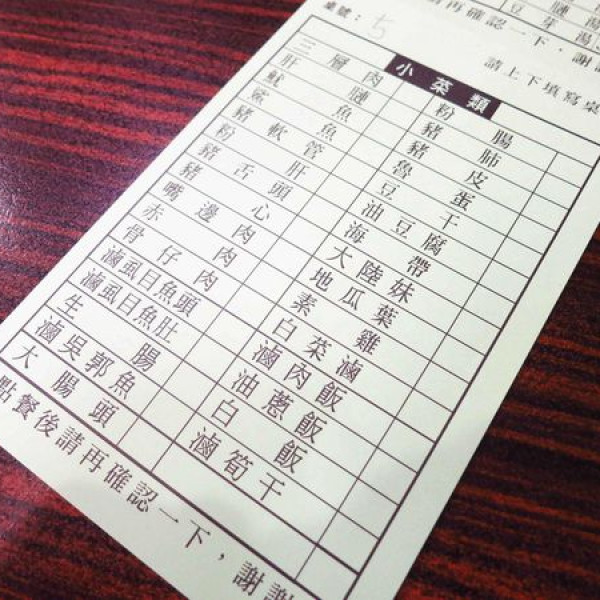 豆芽湯
請再確認一下，謝謝
桌號：5
請上下填寫桌
小菜類
三層肉
肝
魷魚
鯊魚
豬軟管
粉肝
豬舌頭
豬心
嘴邊肉
赤肉
骨仔肉
滷虱目魚頭
滷虱目魚肚
生腸
滷吳郭魚
大腸頭
粉腸
豬肺
豬皮
魯蛋
豆干
油豆腐
海帶
大陸妹
地瓜葉
素雞
白菜滷
滷肉飯
油蔥飯
白飯
滷筍干
點餐後請再確認一下，謝謝